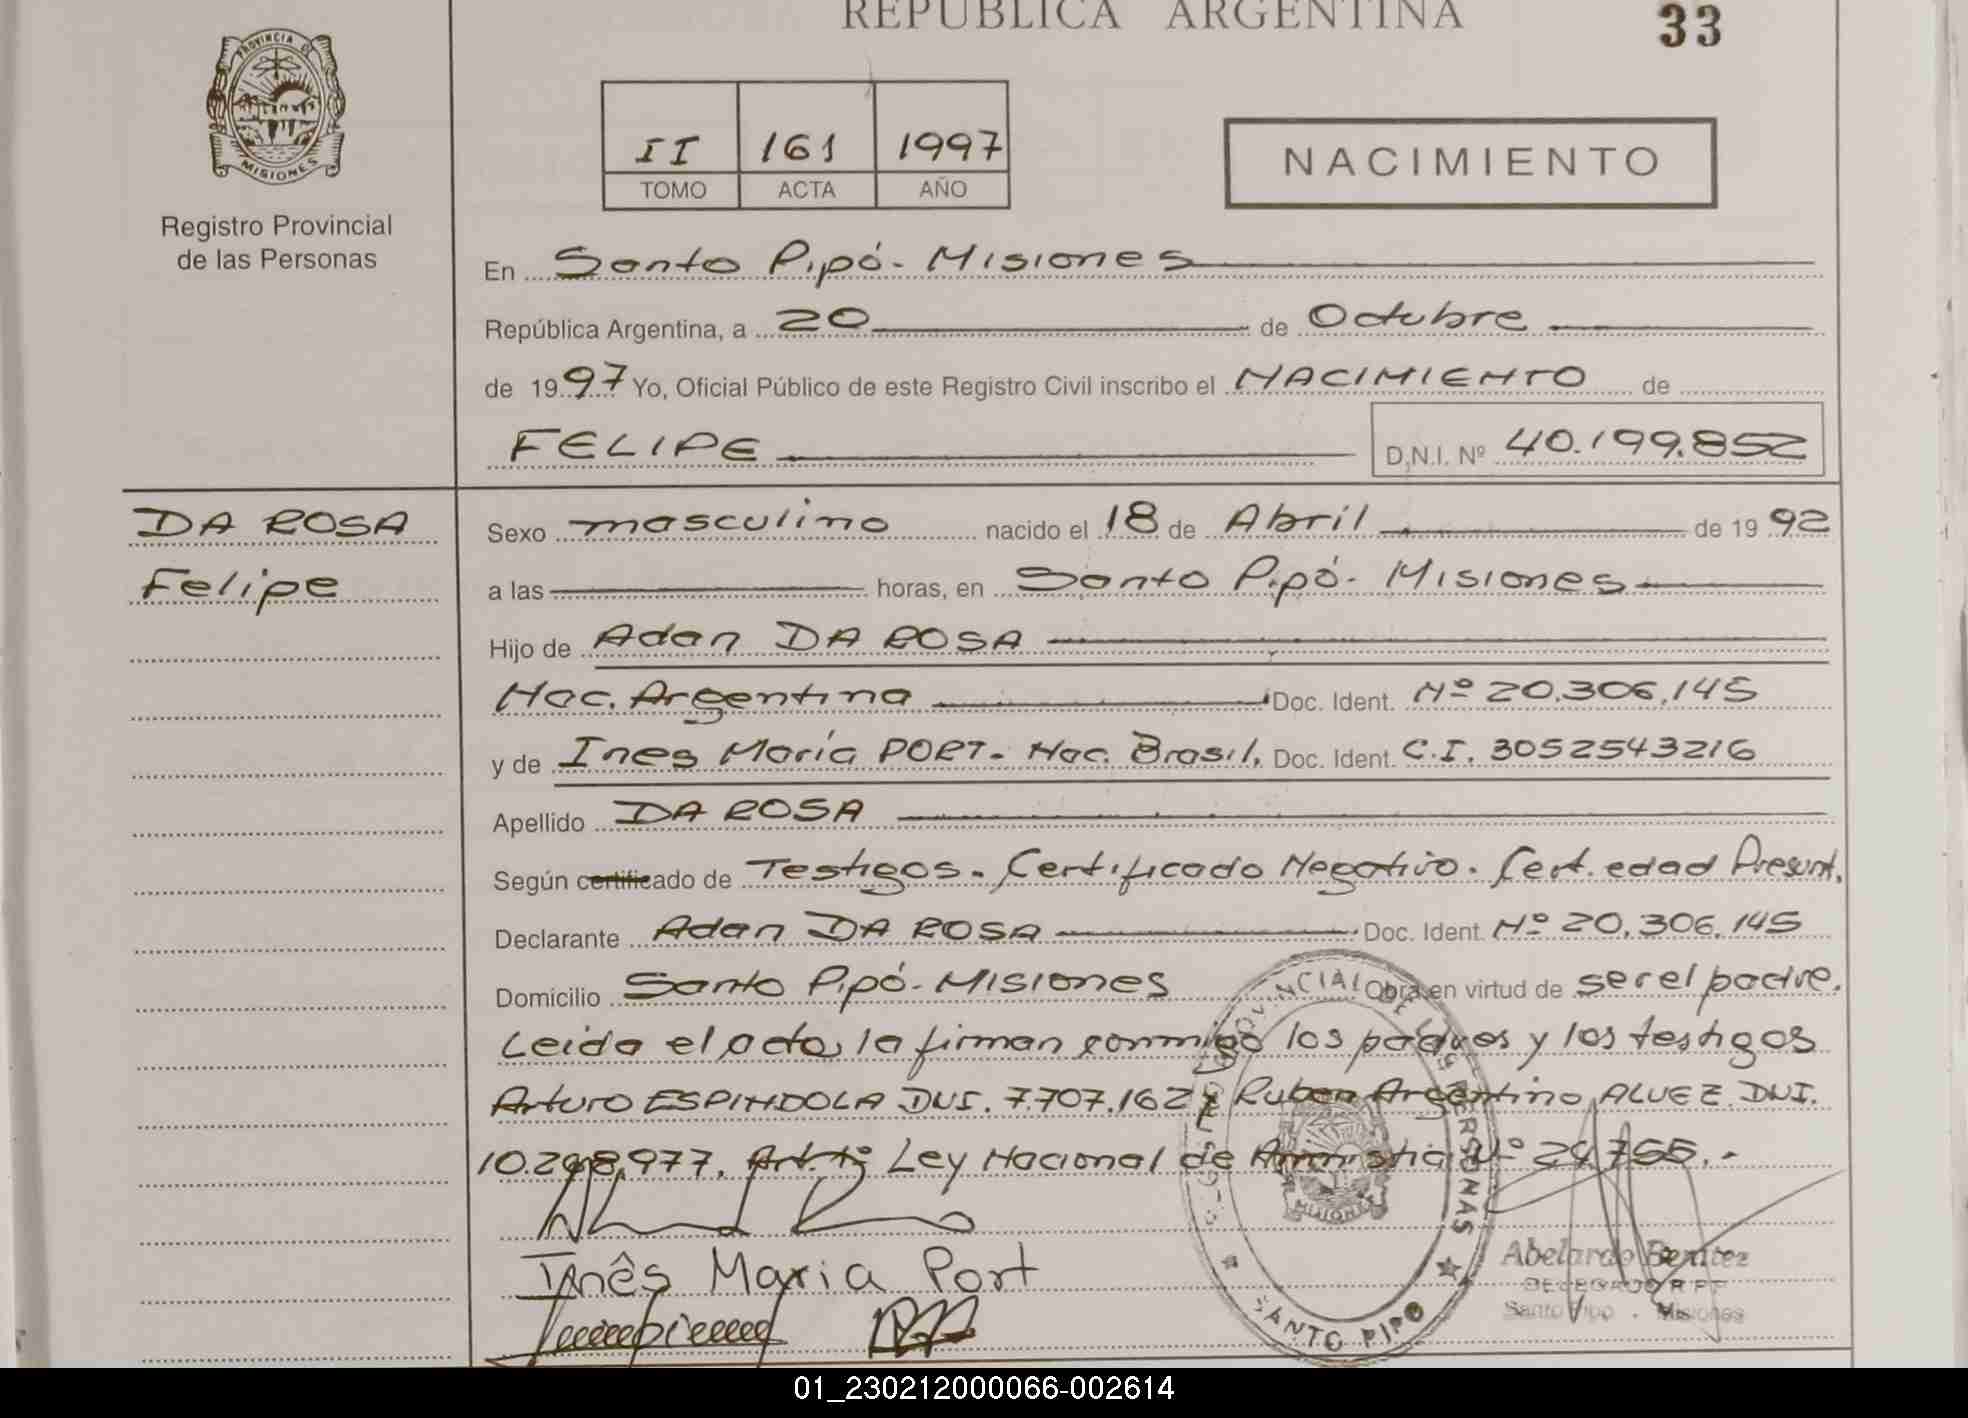 REPUBLICA ARGENTINA
33
PROVINCIA DE MISIONES
Registro Provincial
de las Personas
II 161 1997
TOMO ACTA AÑO
NACIMIENTO
En Santo Pipó - Misiones
República Argentina, a 20 de Octubre
de 1997 Yo, Oficial Público de este Registro Civil inscribo el NACIMIENTO de
FELIPE D.N.I. Nº 40.199.852
DA ROSA
Felipe
Sexo masculino nacido el 18 de Abril de 1992
a las horas, en Santo Pipó - Misiones
Hijo de Adan DA ROSA
Nac. Argentina Doc. Ident. Nº 20.306.145
y de Ines María PORT - Nac. Brasil, Doc. Ident. C.I. 3052543216
Apellido DA ROSA
Según certificado de Testigos - Certificado Negativo - Cert. edad Presunt.
Declarante Adan DA ROSA Doc. Ident. Nº 20.306.145
Domicilio Santo Pipó - Misiones Obra en virtud de ser el padre.
Leida el acta, la firman conmigo los padres y los testigos
Arturo ESPINDOLA DNI. 7.707.162 y Ruben Argentino ALVEZ DNI.
10.298.977, Ley Nacional de Amnistia Nº 24.755.-
Inês Maria Port
SANTO PIPO
Abelardo Benitez
DELEGADO R.P.P.
Santo Pipo - Misiones
01_230212000066-002614